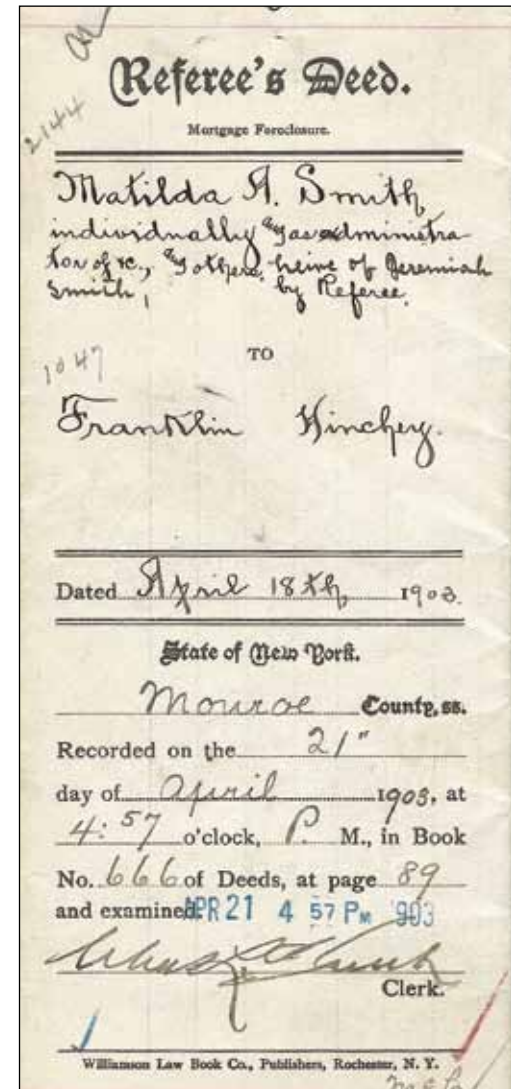 Referee's Deed.
2144
Mortgage Foreclosure.
Matilda A. Smith,
individually & as administra-
tor of &c., & others, heirs of Jeremiah
Smith, by Referee.
TO
1047
Franklin Hinchey.
Dated April 18th 1903.
State of New York.
Monroe County, ss.
Recorded on the 21"
day of April 1903, at
4:57 o'clock, P. M., in Book
No. 666 of Deeds, at page 89
and examined. APR 21 4 57 PM 903
Clerk.
Williamson Law Book Co., Publishers, Rochester, N. Y.